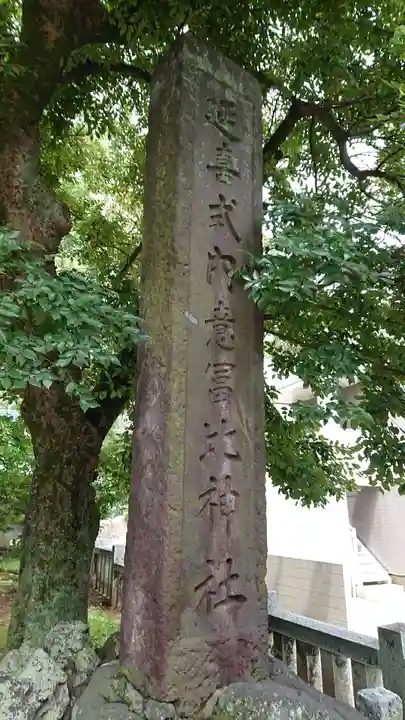 延喜式内意冨比神社